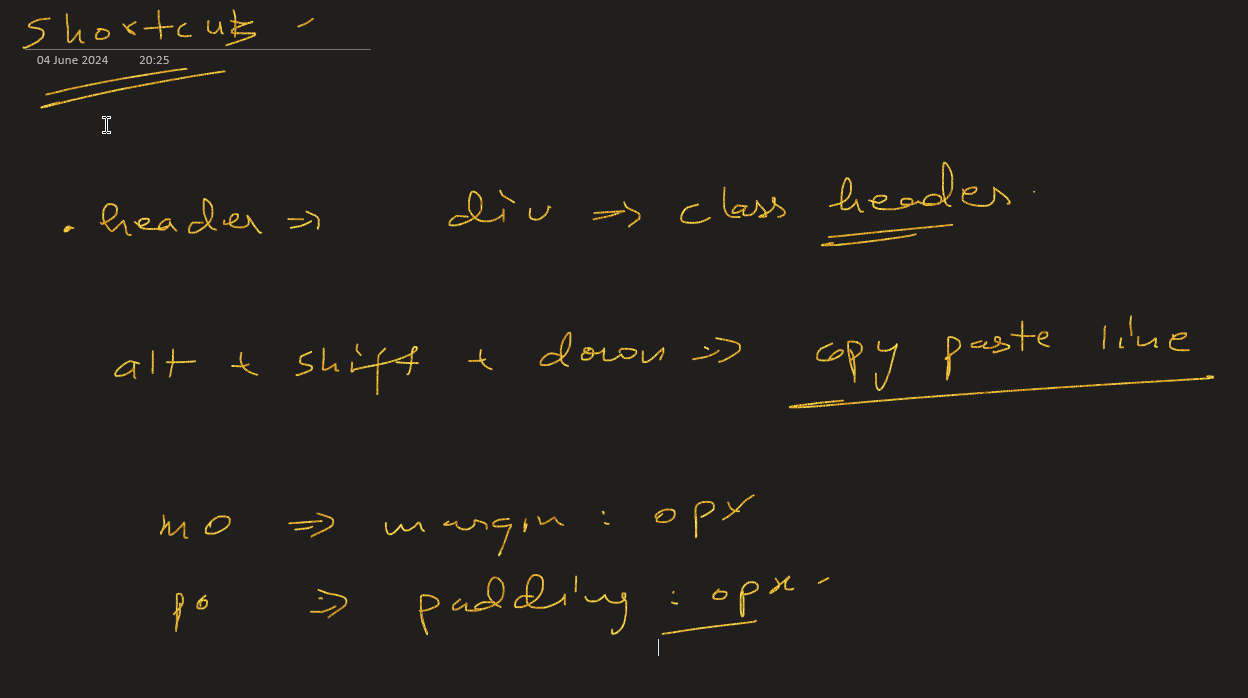 Shortcuts -
04 June 2024 20:25
.header => div => class header.
alt + shift + down => copy paste line
m0 => margin : 0px
p0 => padding : 0px -